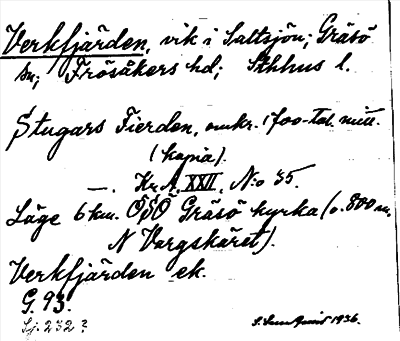 Verkfjärden, vik i Saltsjön; Gräsö
sn; Frösåkers hd; Sthlms l.
Stugars Fierden, omkr. 1700-tal. mitt.
(kopia).
—. Kr. A. XXII, N:o 35.
Läge 6 km. OSO Gräsö kyrka (o. 800 m.
N Vargskäret).
Verkfjärden ek.
G. 93.
Sj. 232?
S. 1936.